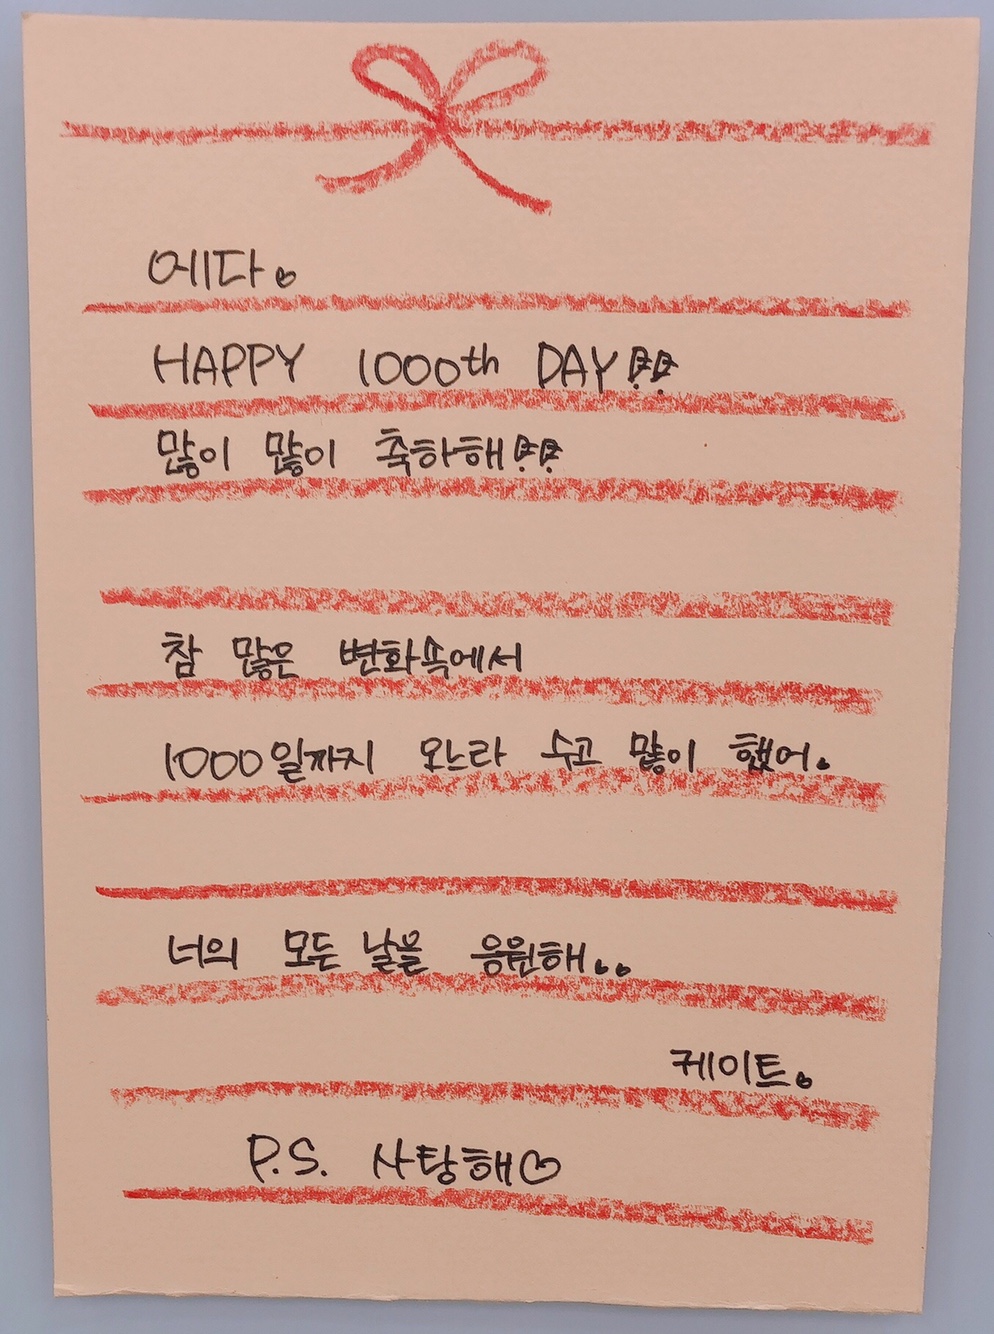 에다.
HAPPY 1000th DAY!!
많이 많이 축하해!!
참 많은 변화속에서
1000일까지 오느라 수고 많이 했어.
너의 모든 날을 응원해..
케이트.
P.S. 사탕해♡